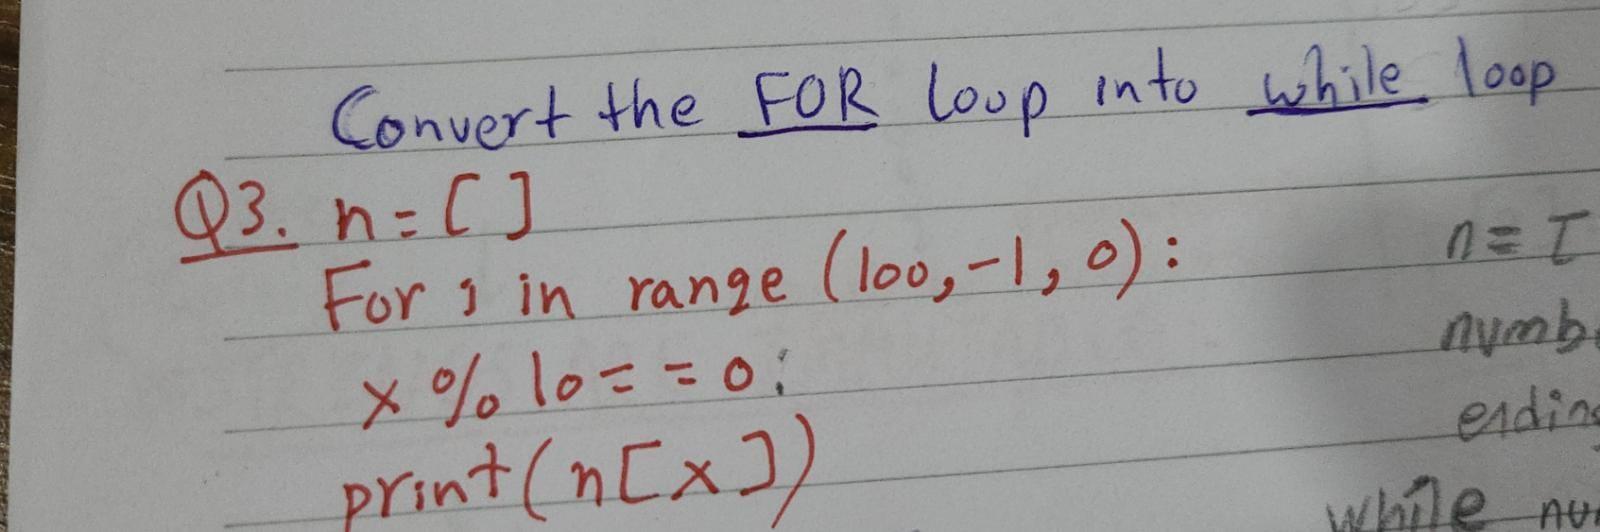 Convert the FOR loop into while loop
Q3. n = [ ]
For i in range (100, -1, 0) :
x % 10 = = 0 :
print (n [x])
n = [
while